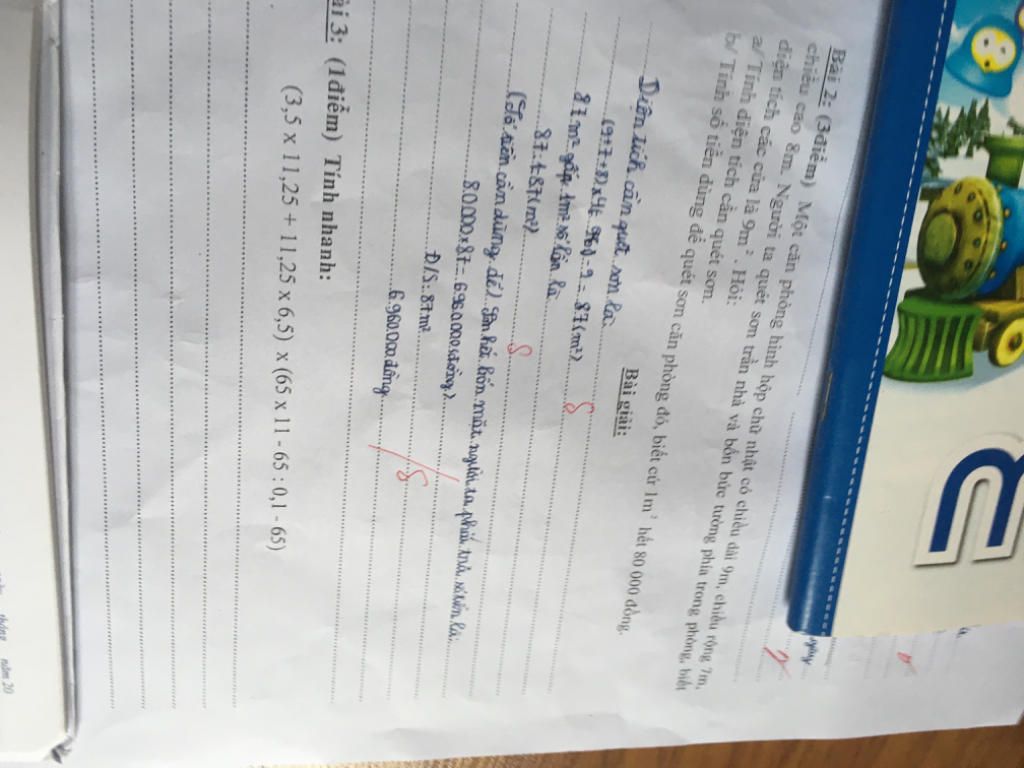 Bài 2: (3điểm) Một căn phòng hình hộp chữ nhật có chiều dài 9m, chiều rộng 7m,
chiều cao 8m. Người ta quét sơn trần nhà và bốn bức tường phía trong phòng, biết
diện tích các cửa là 9m². Hỏi:
a/ Tính diện tích cần quét sơn.
b/ Tính số tiền dùng để quét sơn căn phòng đó, biết cứ 1m² hết 80 000 đồng.
Bài giải:
Diện tích cần quét sơn là:
87 m² gấp 1m² số lần là:
87:1=87(m²)
(Số tiền cần dùng để) sơn hết bốn mặt người ta phải trả số tiền là:
80000x87=6960000(đồng)
Đ/S: 87m²
6960000đồng
ài 3: (1điểm) Tính nhanh:
(3,5 x 11,25 + 11,25 x 6,5) x (65 x 11 - 65 : 0,1 - 65)
tháng năm 20